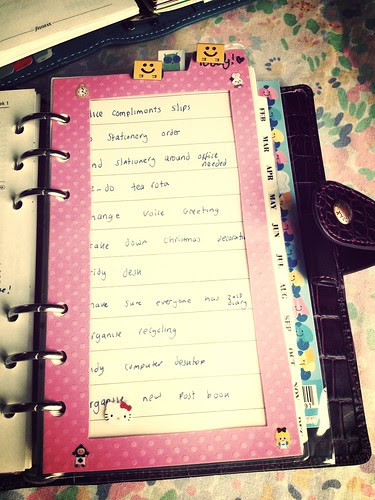 compliments slips
Stationery order
stationery around office
needed
do tea rota
Voice Greeting
Down Christmas
desk
sure everyone has 2013
diary
recycling
computer desktop
new Post book
FEB
MAR
APR
MAY
JUN
JUL
AUG
SEP
OCT
NOV